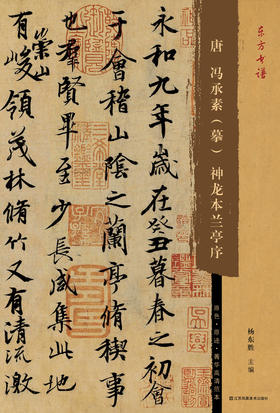 东方书谱
唐 冯承素（摹） 神龙本兰亭序
原色·原迹·菁华高清范本
杨东胜 主编
江苏凤凰美术出版社
永和九年歲在癸丑暮春之初會
于會稽山陰之蘭亭脩稧事
也羣賢畢至少長咸集此地
有崇山峻領茂林脩竹又有清流激